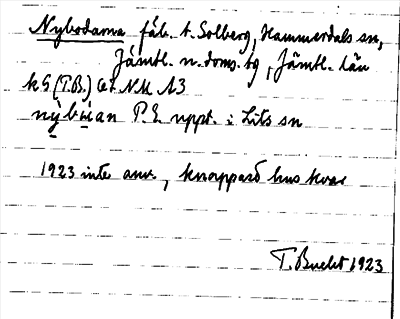 Nybodarna fäb. t. Solberg, Hammerdals sn,
Jämtl. n. doms. tg, Jämtl. län
k G (T.B.)
nỳbùan P.E. uppt. i Lits sn
1923 inte anv., knappard hus kvar
T. Bucht 1923